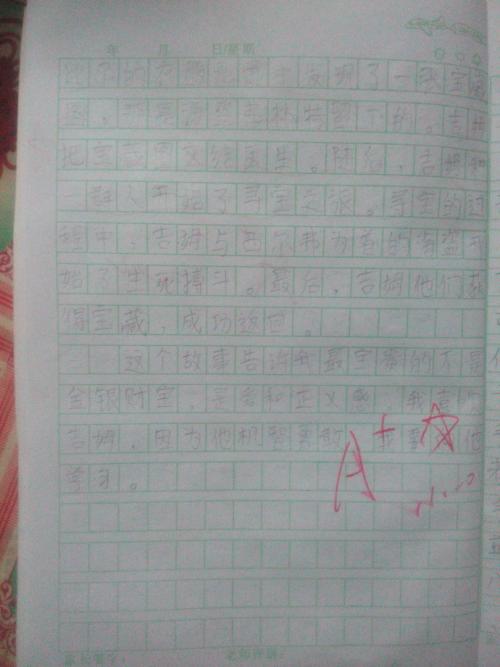 年 月 日/星期
他了的在 发现了一张宝藏
图，那是海盗 特留下的。吉姆
把宝藏图交给医生。随后，吉姆和
一群人开始了寻宝之旅。寻宝的过
程中，吉姆与西尔弗为首的海盗开
始了生死搏斗。最后，吉姆他们获
得宝藏，成功返回。
这个故事告诉我最宝贵的不是
金银财宝，是爱和正义感。我喜
吉姆，因为他机智勇敢，我要 他
学习。
A+
家长签字： 老师评语：